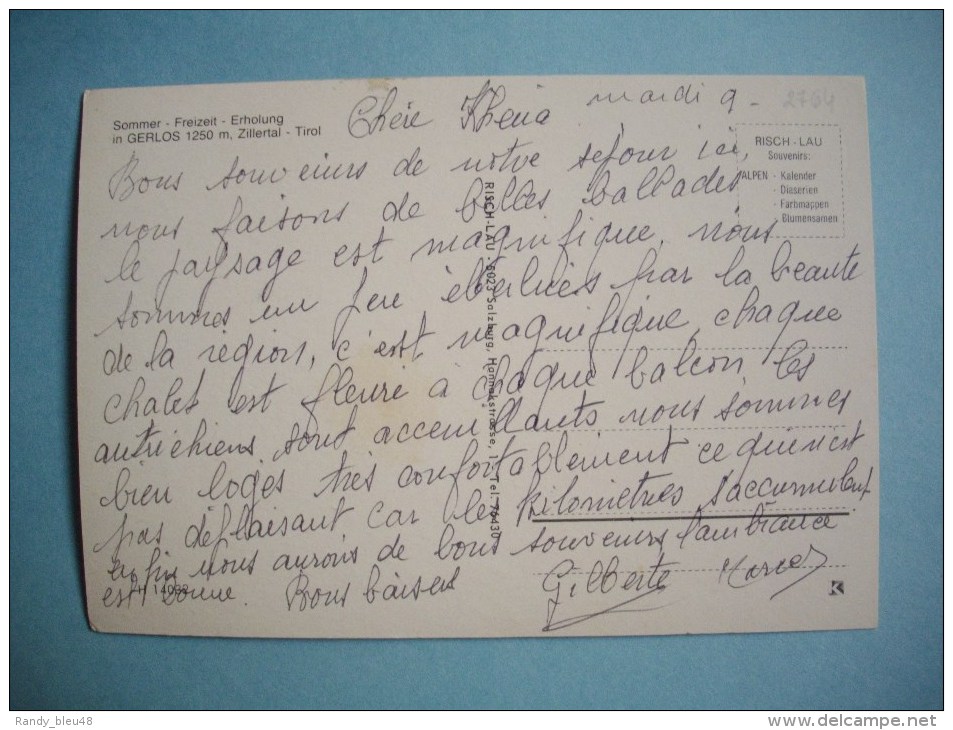 Sommer - Freizeit - Erholung
in GERLOS 1250 m, Zillertal - Tirol
mardi 9.
2764
Chère
RISCH-LAU
Souvenirs:
ALPEN - Kalender
- Diaserien
- Farbmappen
- Blumensamen
Bons souvenirs de notre séjour ici,
nous faisons de belles ballades
le paysage est magnifique, nous
sommes un peu par la beauté
de la région, c'est magnifique, chaque
chalet est fleuri à chaque balcon, les
autrichiens sont accendants nous sommes
bien logés très confortablement ce qui n'est
pas déplaisant car les kilomètres s'accumulent
enfin nous aurons de bons souvenirs l'ambiance
est bonne. Bons baisers
Gilberte Marcel
RISCH-LAU · 5023 Salzburg, Hannakstrasse, Tel. 76430
14082
K
Randy_bleu48
www.delcampe.net